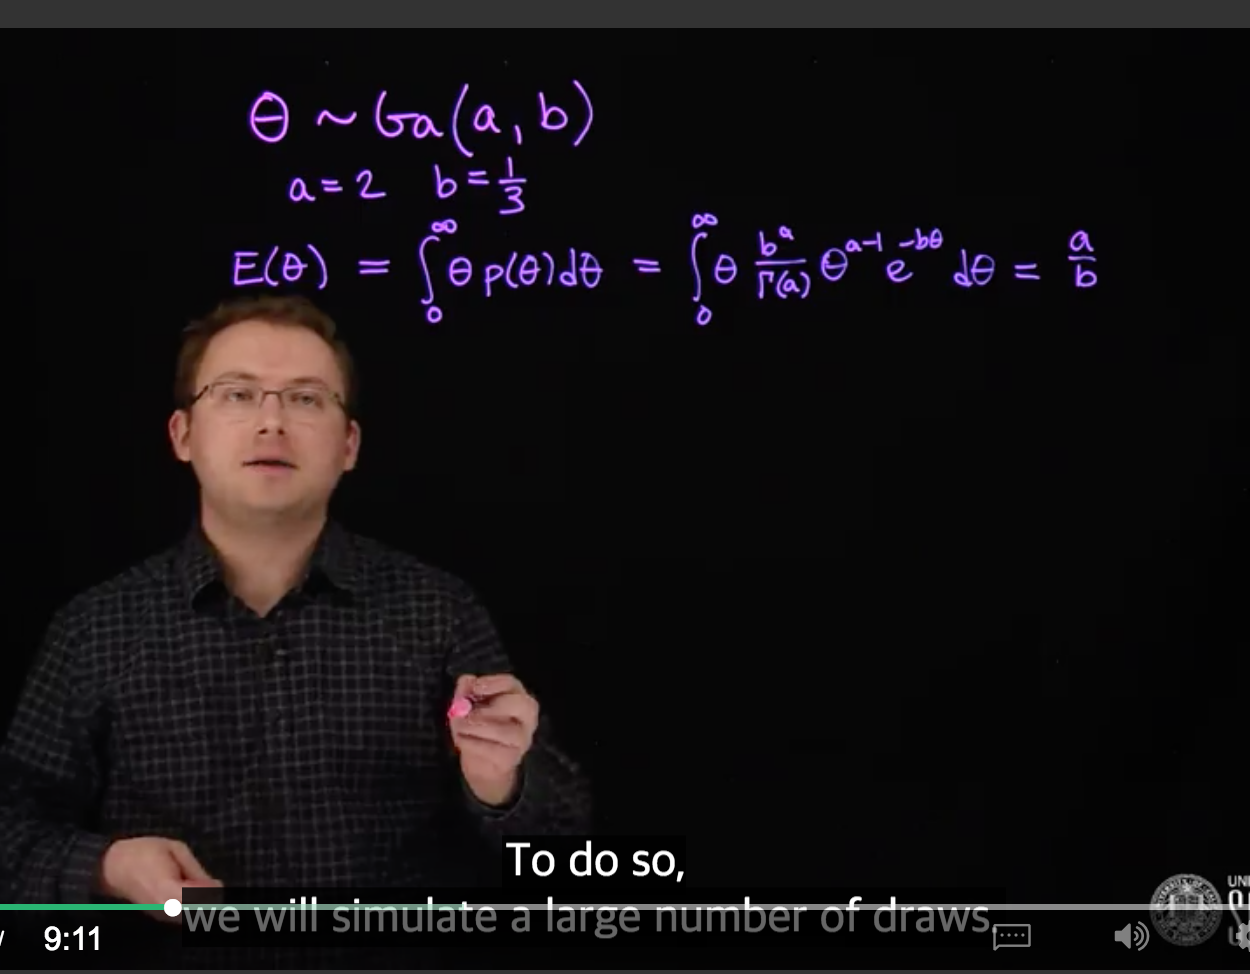 θ ~ Ga(a, b)
a = 2 b = 1/3
E(θ) = ∫₀^∞ θ p(θ) dθ = ∫₀^∞ θ b^a/Γ(a) θ^(a-1) e^(-bθ) dθ = a/b
To do so,
we will simulate a large number of draws,
/ 9:11